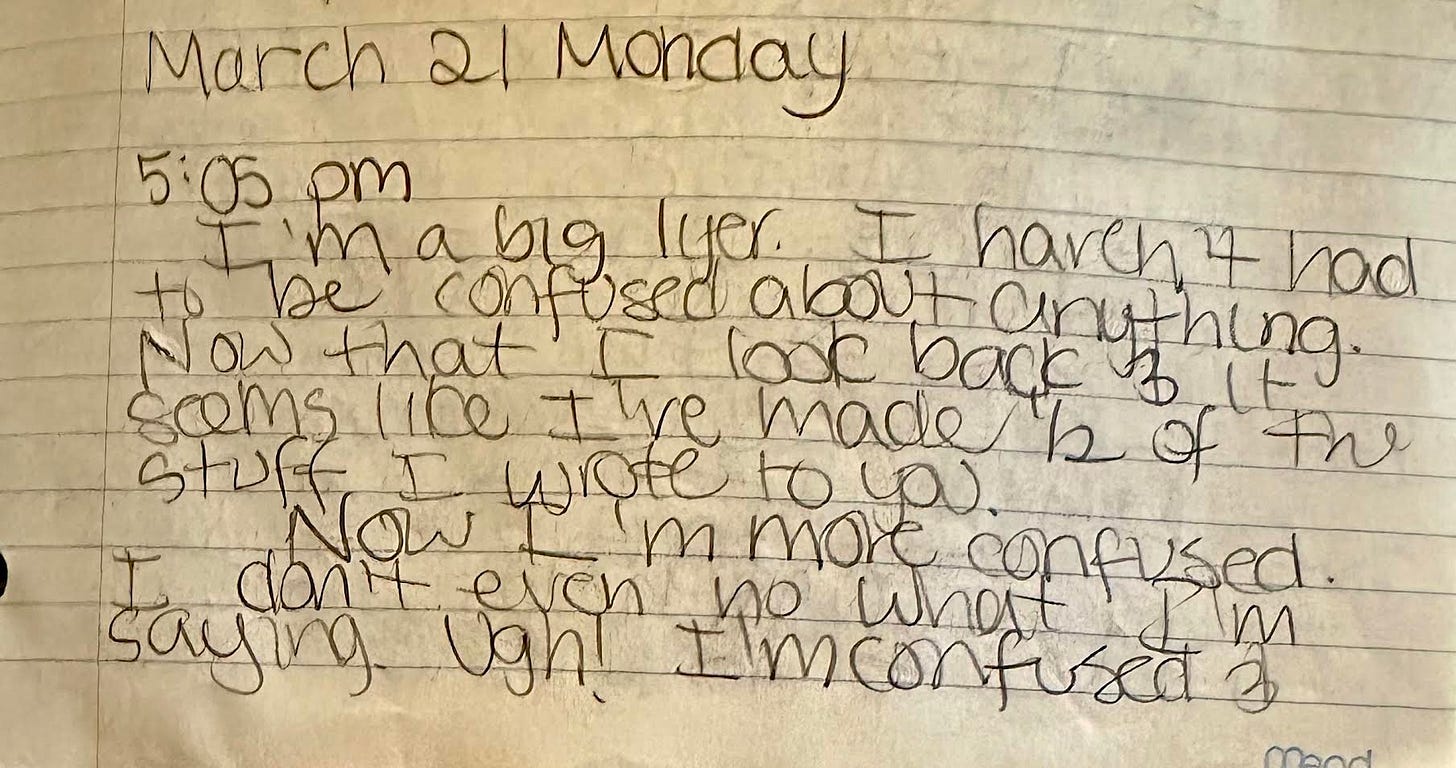 March 21 Monday
5:05 pm
I'm a big lyer. I haven't had
to be confused about anything.
Now that I look back & it
seems like I've made ½ of the
stuff I wrote to you.
Now I'm more confused.
I don't even no what I'm
saying. Ugh! I'm confused &
mead